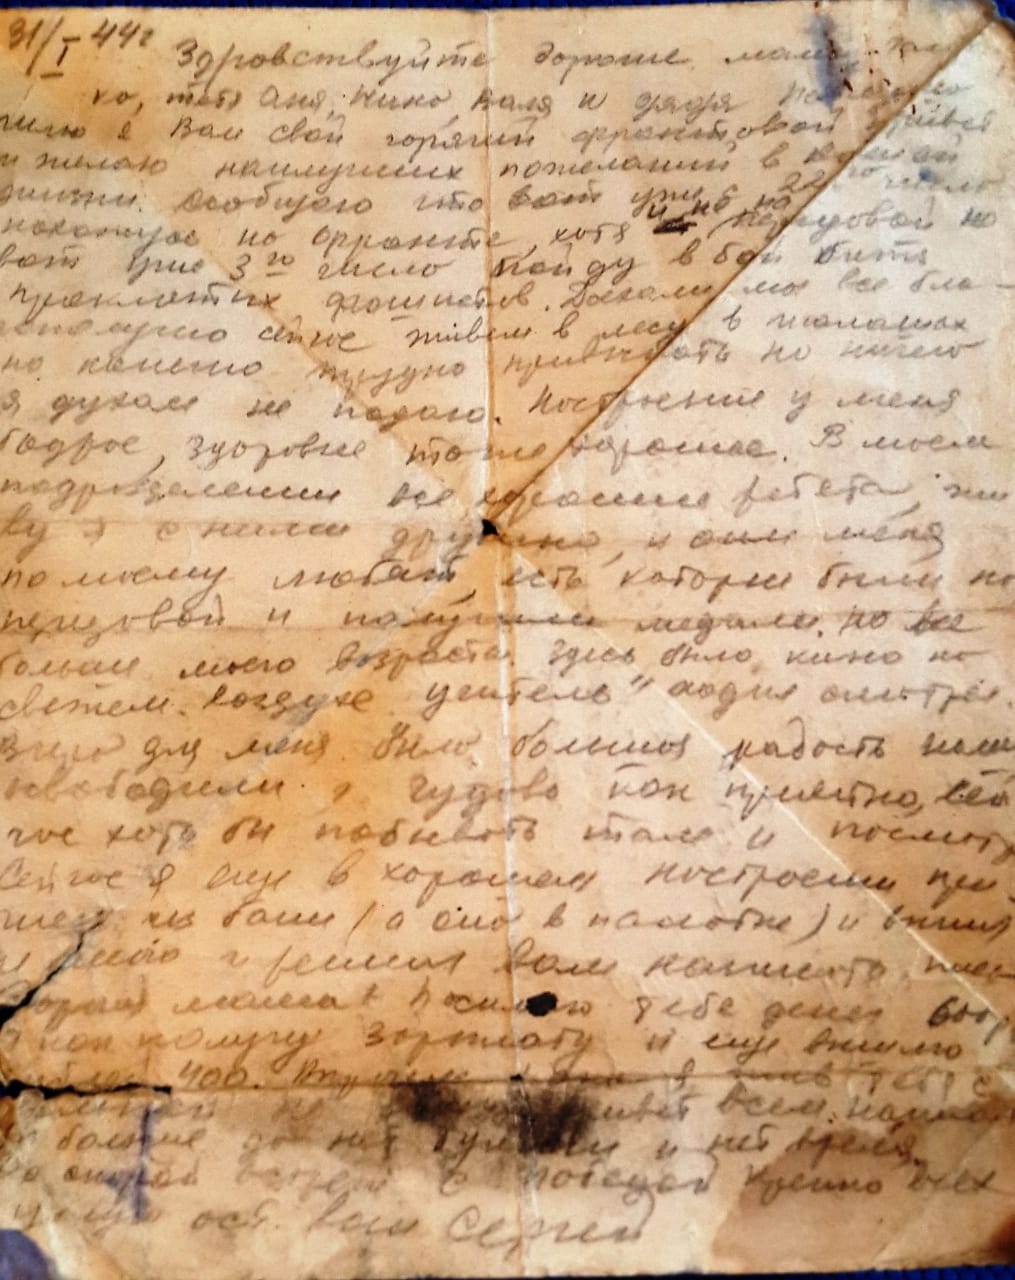 31/I 44г
Здравствуйте дорогие мама
ко, тетя Аня, Нина Валя и дядя
шлю я Вам свой горячий фронтовой привет
и желаю наилучших пожеланий в вашей
жизни. Сообщаю что вот уже 22 число
нахожусь на фронте, хотя и не на передовой но
вот уже 3го число пойду в бой бить
проклятых фашистов. Доехали мы все бла-
гополучно сейчас живем в лесу в шалашах
но конечно трудно привыкать но ничего
я духом не падаю. Настроение у меня
бодрое, здоровье тоже хорошее. В моем
подразделении все хорошие ребята, жи
ву я с ними дружно, и они меня
по моему любят, есть которые были на
передовой и получили медали. но все
больше моего возраста Здесь было кино на
свежем воздухе
Вчера для меня была большая радость наши
освободили г. Чудово как приятно, сей
час хоть бы побывать там и посмотр
Сейчас я еще в хорошем настроении при
шел из бани (а она в палатке) и
и решил вам написать
Дорогая мама! Посылаю тебе денег 600р
я как получу зарплату и еще вышлю
рублей 400.
привет всем.
больше до нет бумаги и нет время.
До скорой встречи с победой Крепко всех
целую ост. ваш Сергей